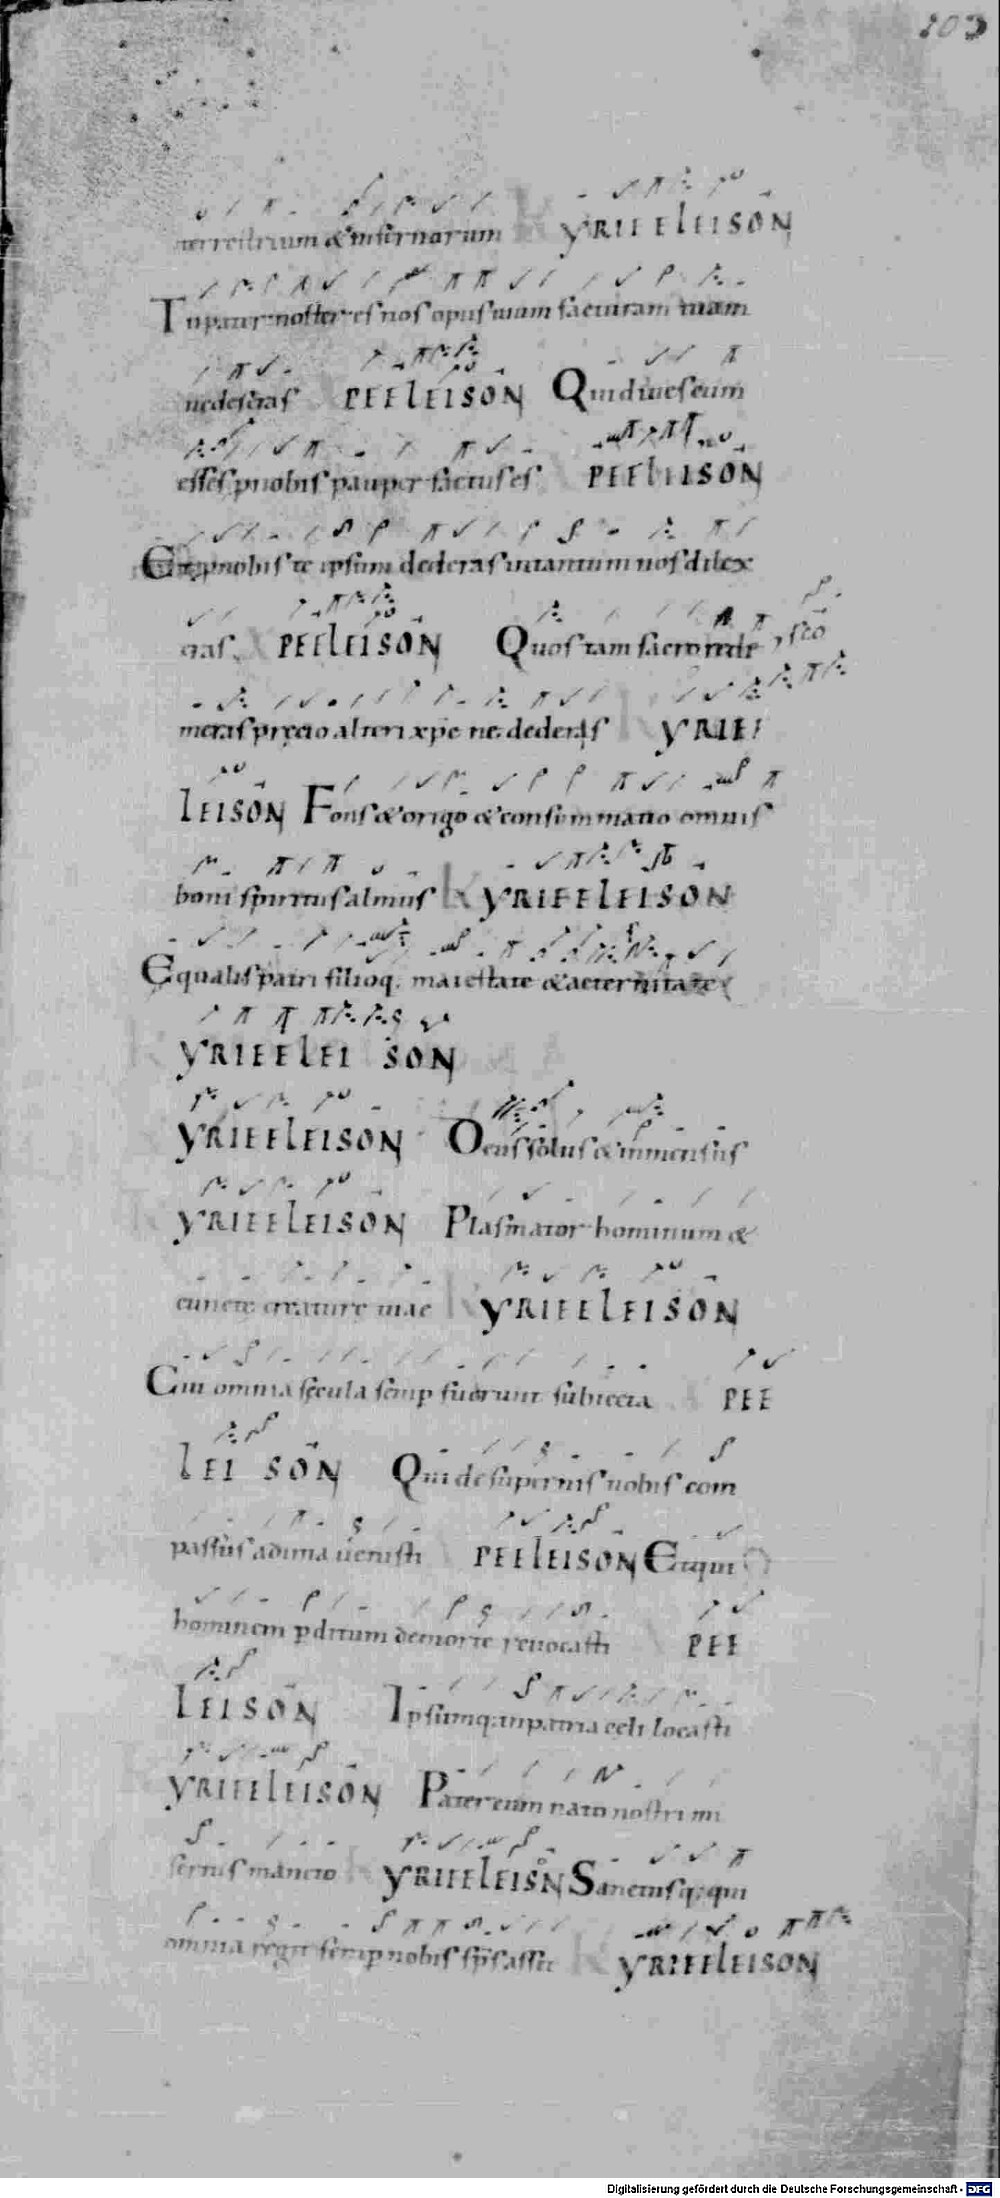 103
terrestrium & infernorum KYRIEELEISON
Tu pater noster es nos opus tuum facturam tuam
ne deseras XPEELEISON Qui dives cum
esses pnobis pauper factus es XPEELEISON
Et pnobis te ipsum dederas in tantum nos dilex
eras XPEELEISON Quos tam sacro
meras precio alteri xpe ne dederis KYRIE
LEISON Fons & origo & consummatio omnis
boni spiritus almus KYRIEELEISON
Equalis patri filioq. maiestate & aeternitate
KYRIEELEISON
KYRIEELEISON Deus solus & inmensus
KYRIEELEISON Plasmator hominum &
cuncte creature tuae KYRIEELEISON
Cui omnia secula semp fuerunt subiecta XPEE
LEISON Qui de supernis nobis com
passus ad ima uenisti XPEELEISON Et qui
hominem pditum de morte reuocasti XPEE
LEISON Ipsumq. in patria celi locasti
KYRIEELEISON Pater cum nato nostri mi
KYRIEELEISON Sanctusq. qui
omnia regit semp nobis sps assit KYRIEELEISON
Digitalisierung gefördert durch die Deutsche Forschungsgemeinschaft - DFG